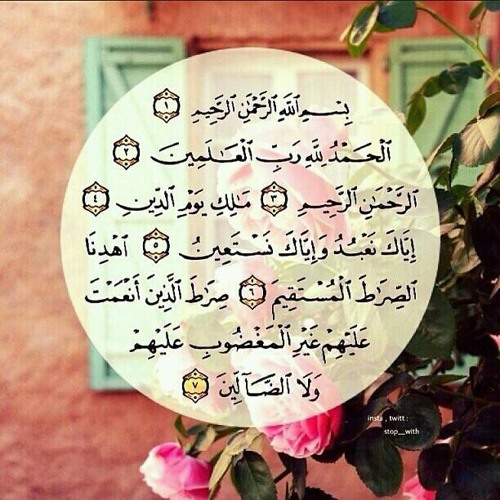 بِسْمِ ٱللَّهِ ٱلرَّحْمَٰنِ ٱلرَّحِيمِ ١
ٱلْحَمْدُ لِلَّهِ رَبِّ ٱلْعَٰلَمِينَ ٢
ٱلرَّحْمَٰنِ ٱلرَّحِيمِ ٣ مَٰلِكِ يَوْمِ ٱلدِّينِ ٤
إِيَّاكَ نَعْبُدُ وَإِيَّاكَ نَسْتَعِينُ ٥ ٱهْدِنَا
ٱلصِّرَٰطَ ٱلْمُسْتَقِيمَ ٦ صِرَٰطَ ٱلَّذِينَ أَنْعَمْتَ
عَلَيْهِمْ غَيْرِ ٱلْمَغْضُوبِ عَلَيْهِمْ
وَلَا ٱلضَّآلِّينَ ٧
insta , twitt :
stop__with